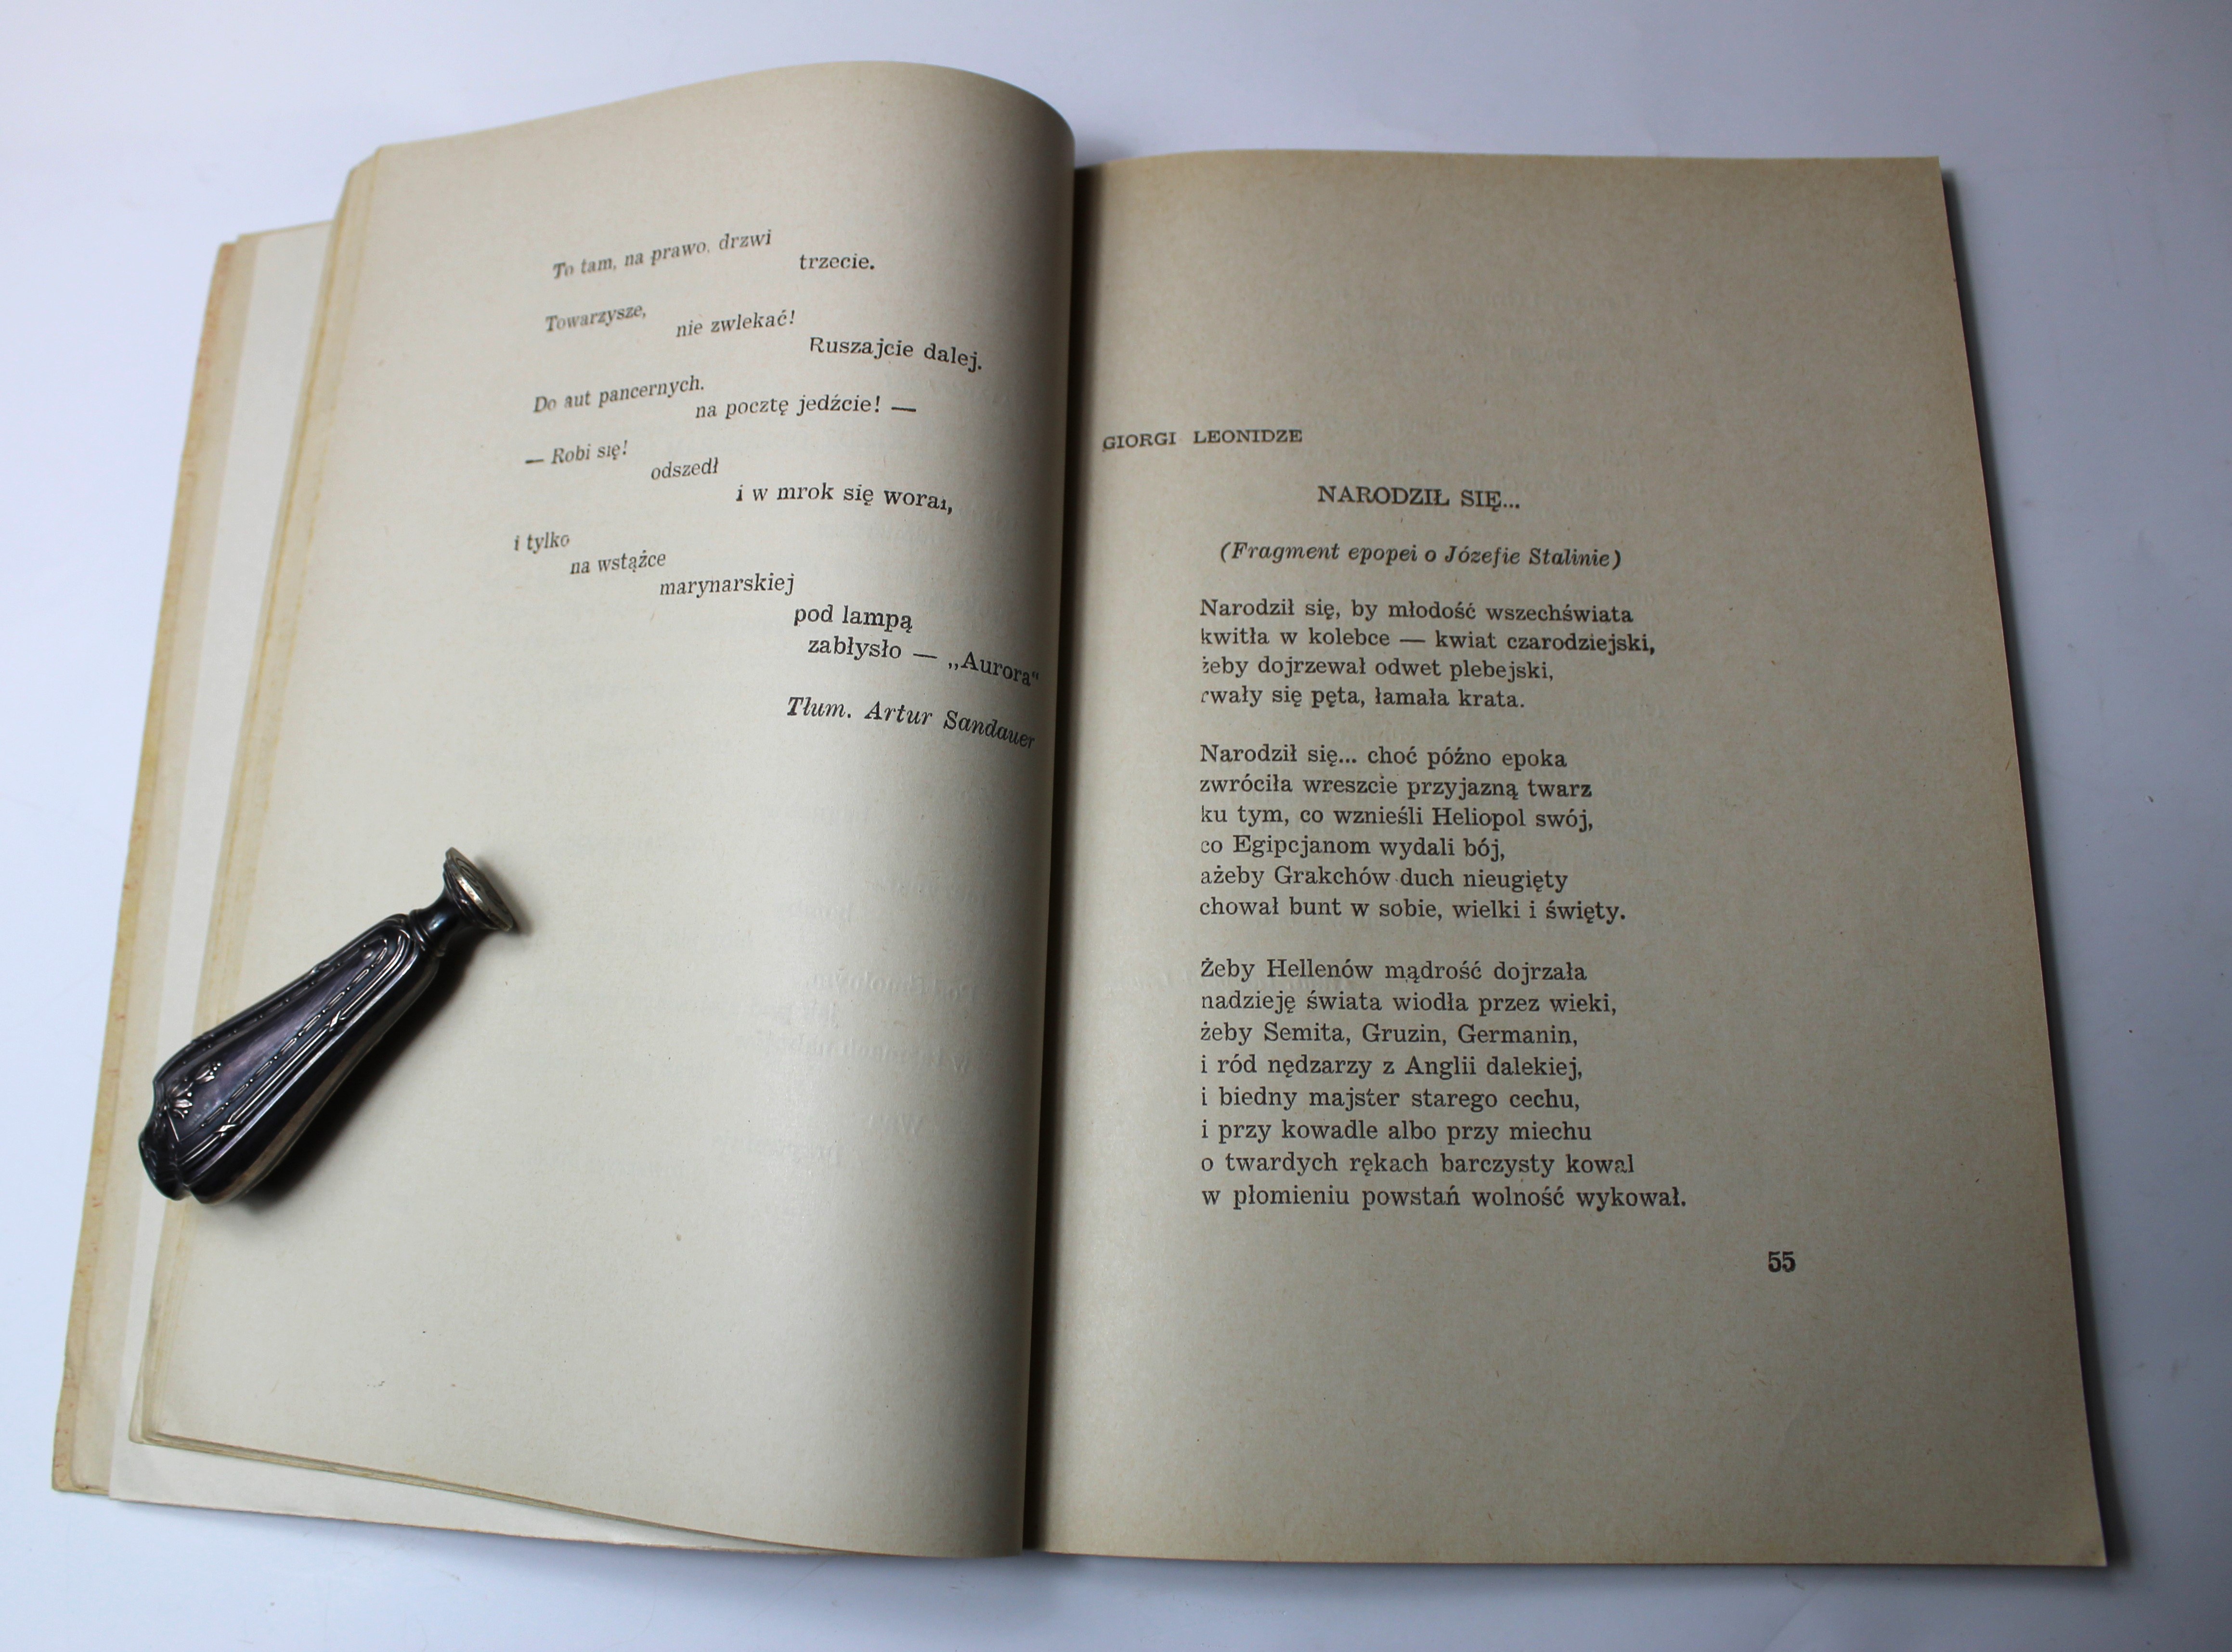 To tam, na prawo, drzwi
trzecie.
Towarzysze,
nie zwlekać!
Ruszajcie dalej.
Do aut pancernych.
na pocztę jedźcie! —
— Robi się!
odszedł
i w mrok się worał,
i tylko
na wstążce
marynarskiej
pod lampą
zabłysło — „Aurora“
Tłum. Artur Sandauer
GIORGI LEONIDZE
NARODZIŁ SIĘ...
(Fragment epopei o Józefie Stalinie)
Narodził się, by młodość wszechświata
kwitła w kolebce — kwiat czarodziejski,
żeby dojrzewał odwet plebejski,
rwały się pęta, łamała krata.
Narodził się... choć późno epoka
zwróciła wreszcie przyjazną twarz
ku tym, co wznieśli Heliopol swój,
co Egipcjanom wydali bój,
ażeby Grakchów duch nieugięty
chował bunt w sobie, wielki i święty.
Żeby Hellenów mądrość dojrzała
nadzieję świata wiodła przez wieki,
żeby Semita, Gruzin, Germanin,
i ród nędzarzy z Anglii dalekiej,
i biedny majster starego cechu,
i przy kowadle albo przy miechu
o twardych rękach barczysty kowal
w płomieniu powstań wolność wykował.
55